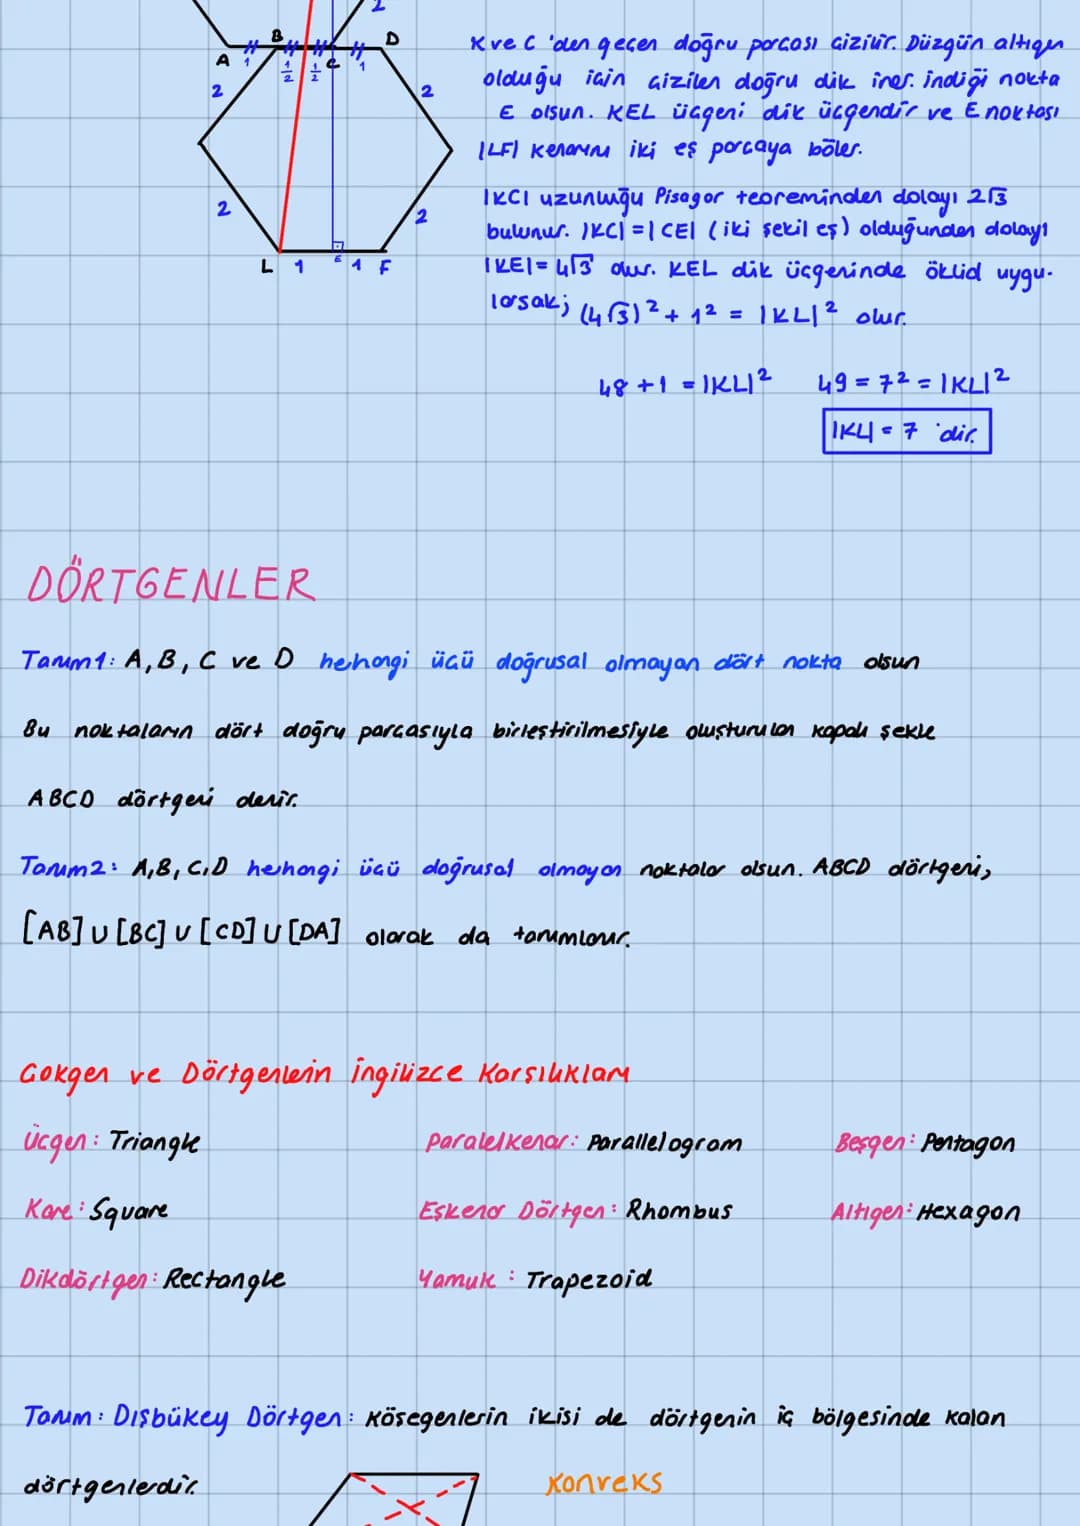 2
A 1 B 1/2 1/2 C 1 D
2 2
2 2
L 1 E 1 F
K ve C 'den geçen doğru parçası çizilir. Düzgün altıgen
olduğu için çizilen doğru dik iner. İndiği nokta
E olsun. KEL üçgeni dik üçgendir ve E noktası
|LF| kenarını iki eş parçaya böler.
|KC| uzunluğu Pisagor teoreminden dolayı 2√3
bulunur. |KC| = |CE| (iki şekil eş) olduğundan dolayı
|KE| = 4√3 olur. KEL dik üçgeninde öklid uygu-
larsak; (4√3)² + 1² = |KL|² olur.
48 + 1 = |KL|² 49 = 7² = |KL|²
|KL| = 7 'dir.
DÖRTGENLER
Tanım1: A, B, C ve D herhangi üçü doğrusal olmayan dört nokta olsun
Bu noktaların dört doğru parçasıyla birleştirilmesiyle oluşturulan kapalı şekle
ABCD dörtgeni denir.
Tanım2: A,B,C,D herhangi üçü doğrusal olmayan noktalar olsun. ABCD dörtgeni,
[AB] ∪ [BC] ∪ [CD] ∪ [DA] olarak da tanımlanır.
Çokgen ve Dörtgenlerin İngilizce Karşılıkları
Üçgen: Triangle Paralelkenar: Parallelogram Beşgen: Pentagon
Kare: Square Eşkenar Dörtgen: Rhombus Altıgen: Hexagon
Dikdörtgen: Rectangle Yamuk: Trapezoid
Tanım: Dışbükey Dörtgen: Köşegenlerin ikisi de dörtgenin iç bölgesinde kalan
dörtgenlerdir. Konveks